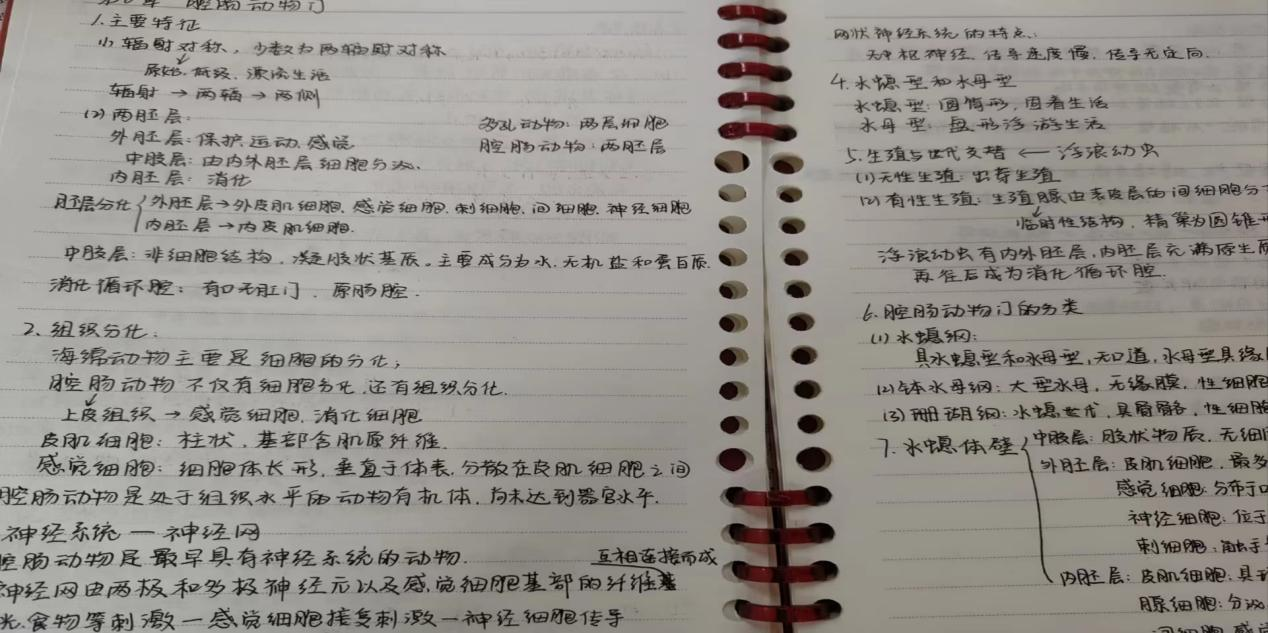 腔肠动物门
1.主要特征
(1)辐射对称，少数为两辐射对称
原始.低级，漂流生活
辐射→两辐→两侧
(2)两胚层：
多孔动物：两层细胞
外胚层：保护.运动.感觉
腔肠动物：两胚层
中胶层：由内外胚层细胞分泌.
内胚层：消化
胚层分化 外胚层→外皮肌细胞.感觉细胞.刺细胞.间细胞.神经细胞
内胚层→内皮肌细胞.
中胶层：非细胞结构，凝胶状基质。主要成分为水.无机盐和蛋白质.
消化循环腔：有口无肛门.原肠腔.
2.组织分化：
海绵动物主要是细胞的分化；
腔肠动物不仅有细胞分化.还有组织分化.
上皮组织→感觉细胞.消化细胞
皮肌细胞：柱状，基部含肌原纤维.
感觉细胞：细胞体长形，垂直于体表，分散在皮肌细胞之间
腔肠动物是处于组织水平的动物有机体.尚未达到器官水平.
神经系统—神经网
腔肠动物是最早具有神经系统的动物.
互相连接而成
神经网由两极和多极神经元以及感觉细胞基部的纤维
光.食物等刺激—感觉细胞接受刺激—神经细胞传导
网状神经系统的特点：
无中枢神经.传导速度慢.传导无定向.
4.水螅型和水母型
水螅型：圆筒形，固着生活
水母型：盘形浮游生活
5.生殖与世代交替←浮浪幼虫
(1)无性生殖：出芽生殖
(2)有性生殖：生殖腺由表皮层的间细胞分
临时性结构，精巢为圆锥形
浮浪幼虫有内外胚层，内胚层充满原生质
再往后成为消化循环腔.
6.腔肠动物门的分类
(1)水螅纲：
具水螅型和水母型，无口道，水母型具缘
(2)钵水母纲：大型水母，无缘膜，性细胞
(3)珊瑚纲：水螅世代，具骨骼，性细胞
7.水螅体壁 中胶层：胶状物质，无细
外胚层：皮肌细胞，最多
感觉细胞：分布于口
神经细胞：位于
刺细胞：
内胚层：皮肌细胞：具
腺细胞：分泌
间细胞.感觉